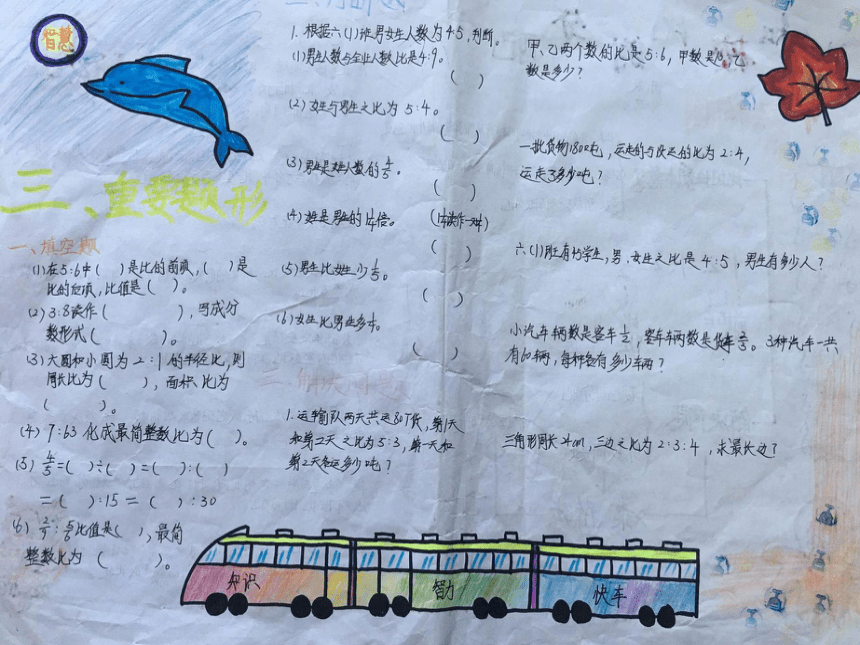 智慧
三、重要题形
一、填空题
(1)在5:6中( )是比的前项,( )是
比的后项,比值是( )。
(2)3:8读作( ),写成分
数形式( )。
(3)大圆和小圆为2:1的半径比,则
周长比为( ),面积比为
( )。
(4)7:63化成最简整数比为( )。
(5)4/5=( )÷( )=( ):( )
=( ):15=( ):30
(6) 比值是( ),最简
整数比为( )。
1.根据六(1)班男女生人数为4:5,判断。
(1)男生人数与全业人数比是4:9。
( )
(2)女生与男生之比为5:4。
( )
(3)男生是女生人数的4/5。
( )
(4)女生是男生的 倍。
( )
(5)男生比女生少1/5。
( )
(6)女生比男生多
( )
二、解决问题
1.运输队两天共运80T货,第1天
和第2天之比为5:3,第一天和
第2天各运多少吨?
甲、乙两个数的比是5:6,甲数是 乙
数是多少?
一批货物1800吨,运走的与没运的比为2:4,
运走了多少吨?
六(1)班有 学生,男、女生之比是4:5,男生有多少人?
小汽车辆数是客车 ,客车车辆数是货车 。3种汽车一共
有60辆,每种各有多少车辆?
三角形周长24cm,三边之比为2:3:4,求最长边?
知识 智力 快车